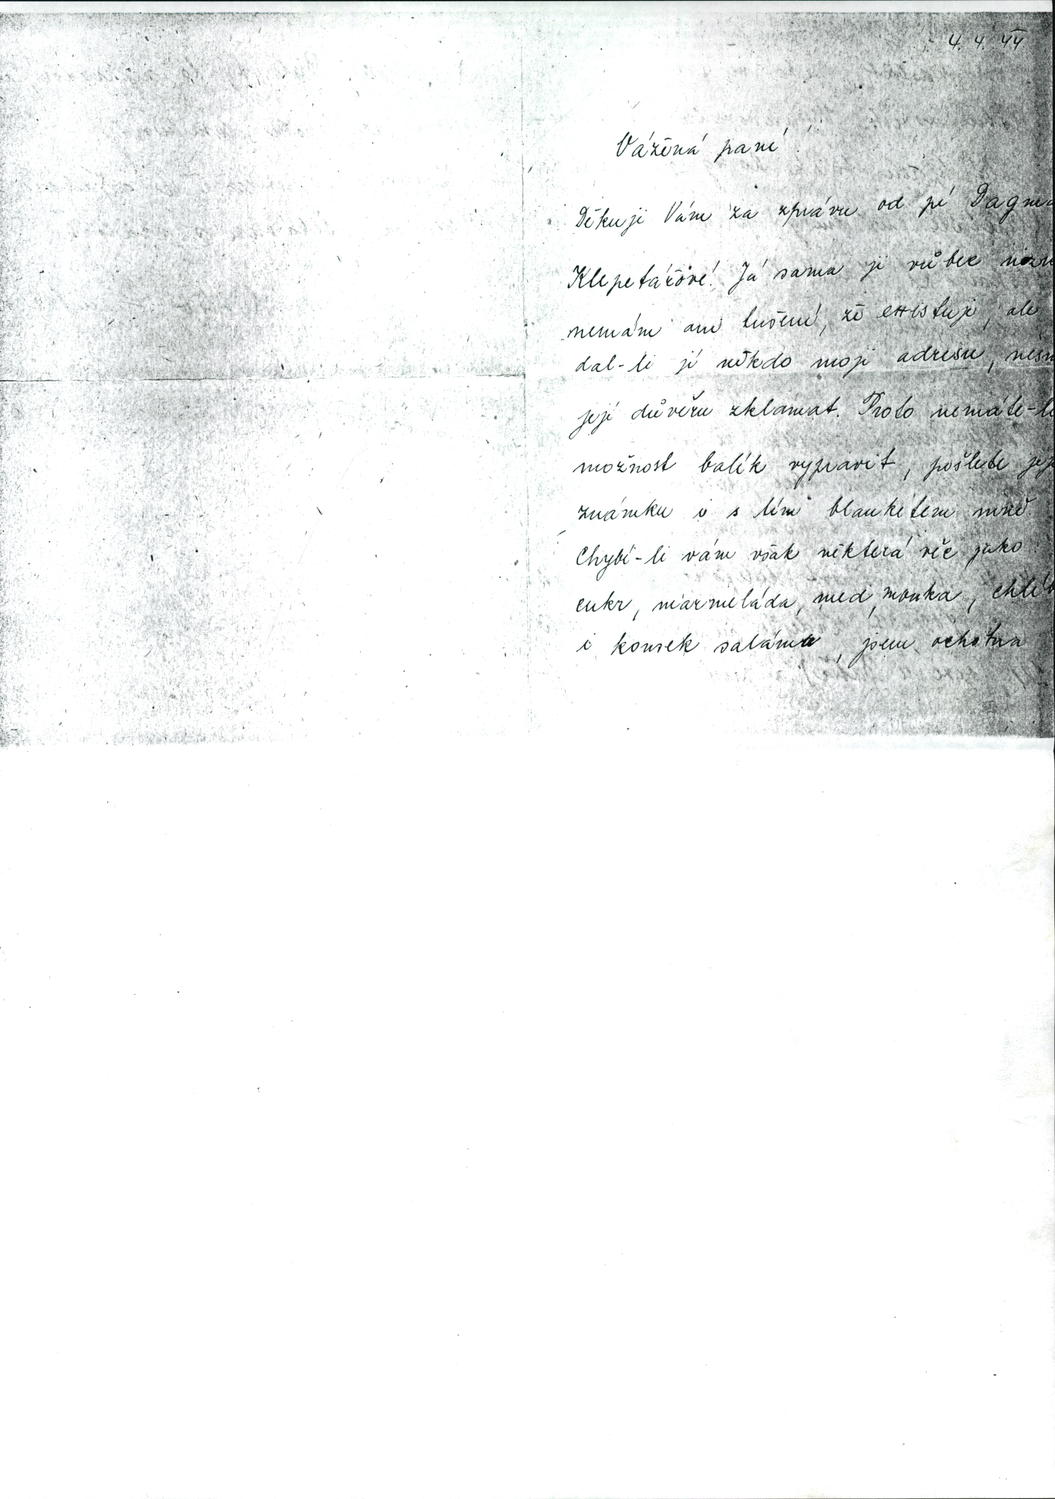 4. 4. 44
Vážená paní!
Děkuji Vám za zprávu od pí Dagm
Klepetářové! Já sama ji vůbec
nemám ani tušení, že existuje, ale
dal-li jí někdo moji adresu,
její důvěru zklamat. Proto nemáte-l
možnost balík vypravit, pošlete
známku i s tím blanketem mně
Chybí-li vám však některá věc jako
cukr, marmeláda, med, mouka, chléb
i kousek salámu, jsem ochotna